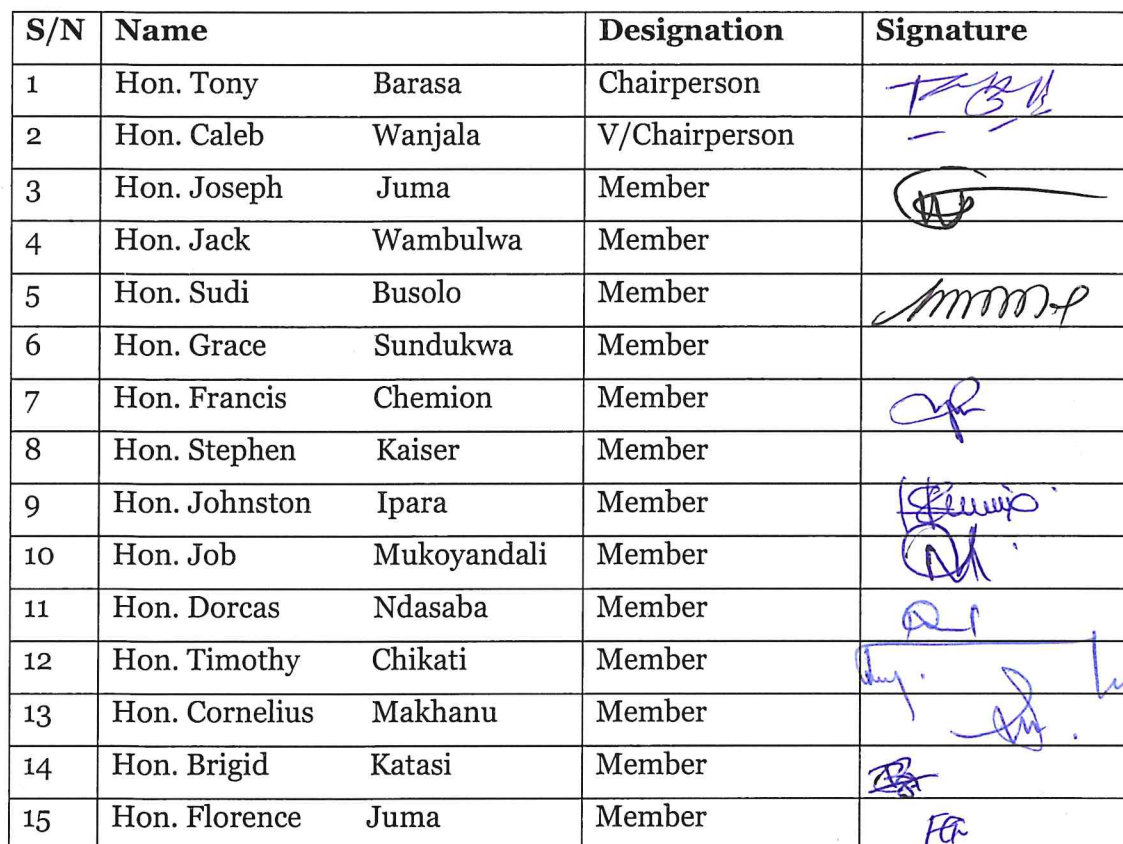 S/N Name Designation Signature
1 Hon. Tony Barasa Chairperson
2 Hon. Caleb Wanjala V/Chairperson
3 Hon. Joseph Juma Member
4 Hon. Jack Wambulwa Member
5 Hon. Sudi Busolo Member
6 Hon. Grace Sundukwa Member
7 Hon. Francis Chemion Member
8 Hon. Stephen Kaiser Member
9 Hon. Johnston Ipara Member
10 Hon. Job Mukoyandali Member
11 Hon. Dorcas Ndasaba Member
12 Hon. Timothy Chikati Member
13 Hon. Cornelius Makhanu Member
14 Hon. Brigid Katasi Member
15 Hon. Florence Juma Member